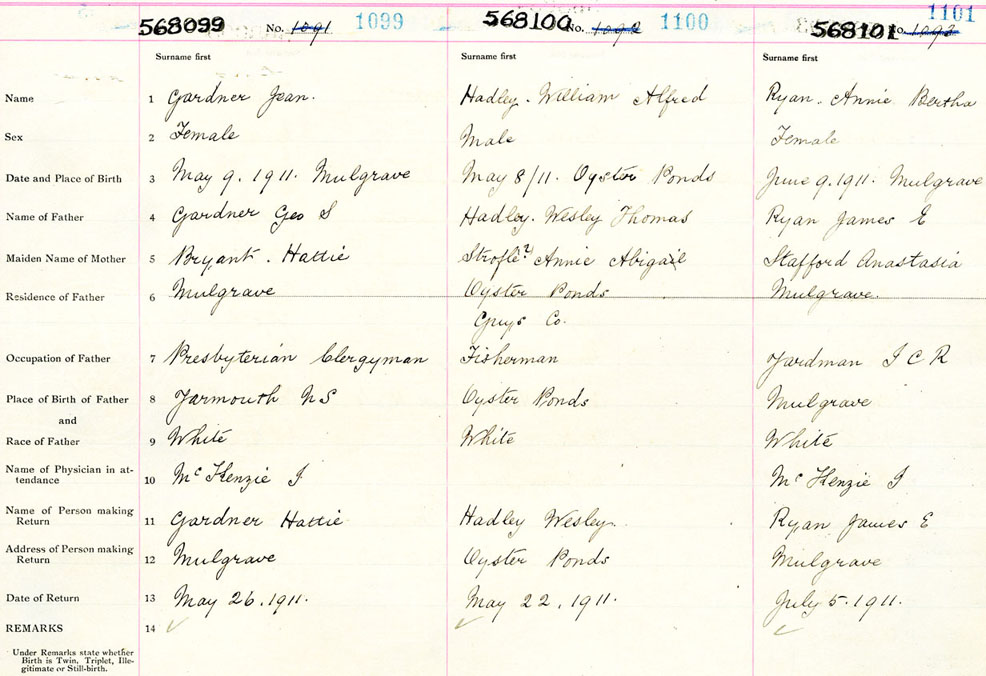 568099 No. 1091 1099 568100 No. 1092 1100 568101 No. 1093 1101
Surname first Surname first Surname first
Name 1 Gardner Jean. Hadley. William Alfred Ryan. Annie Bertha
Sex 2 Female Male Female
Date and Place of Birth 3 May 9. 1911. Mulgrave May 8/11. Oyster Ponds June 9. 1911. Mulgrave
Name of Father 4 Gardner Geo S Hadley. Wesley Thomas Ryan James E
Maiden Name of Mother 5 Bryant. Hattie Strofle? Annie Abigail Stafford Anastasia
Residence of Father 6 Mulgrave Oyster Ponds Mulgrave.
Guys Co.
Occupation of Father 7 Presbyterian Clergyman Fisherman Yardman I C R
Place of Birth of Father 8 Yarmouth NS Oyster Ponds Mulgrave
and
Race of Father 9 White White White
Name of Physician in at-
tendance 10 McKenzie J McKenzie J
Name of Person making
Return 11 Gardner Hattie Hadley Wesley. Ryan James E
Address of Person making
Return 12 Mulgrave Oyster Ponds Mulgrave
Date of Return 13 May 26. 1911. May 22. 1911. July 5. 1911.
REMARKS 14
Under Remarks state whether
Birth is Twin, Triplet, Ille-
gitimate or Still-birth.